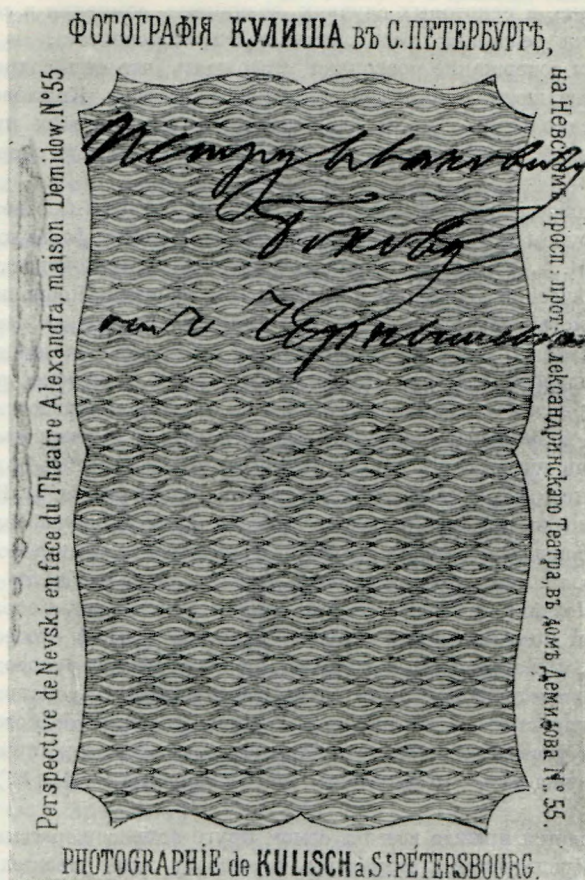 ФОТОГРАФІЯ КУЛИША ВЪ С. ПЕТЕРБУРГѢ,
на Невскомъ просп: прот: Александринскаго Театра, въ домѣ Демидова №. 55.
Петру Ивановичу
Бокову
отъ Чернышевска
Perspective de Nevski en face du Theatre Alexandra, maison Demidow. N°. 55
PHOTOGRAPHIE de KULISCH à St. PÉTERSBOURG.